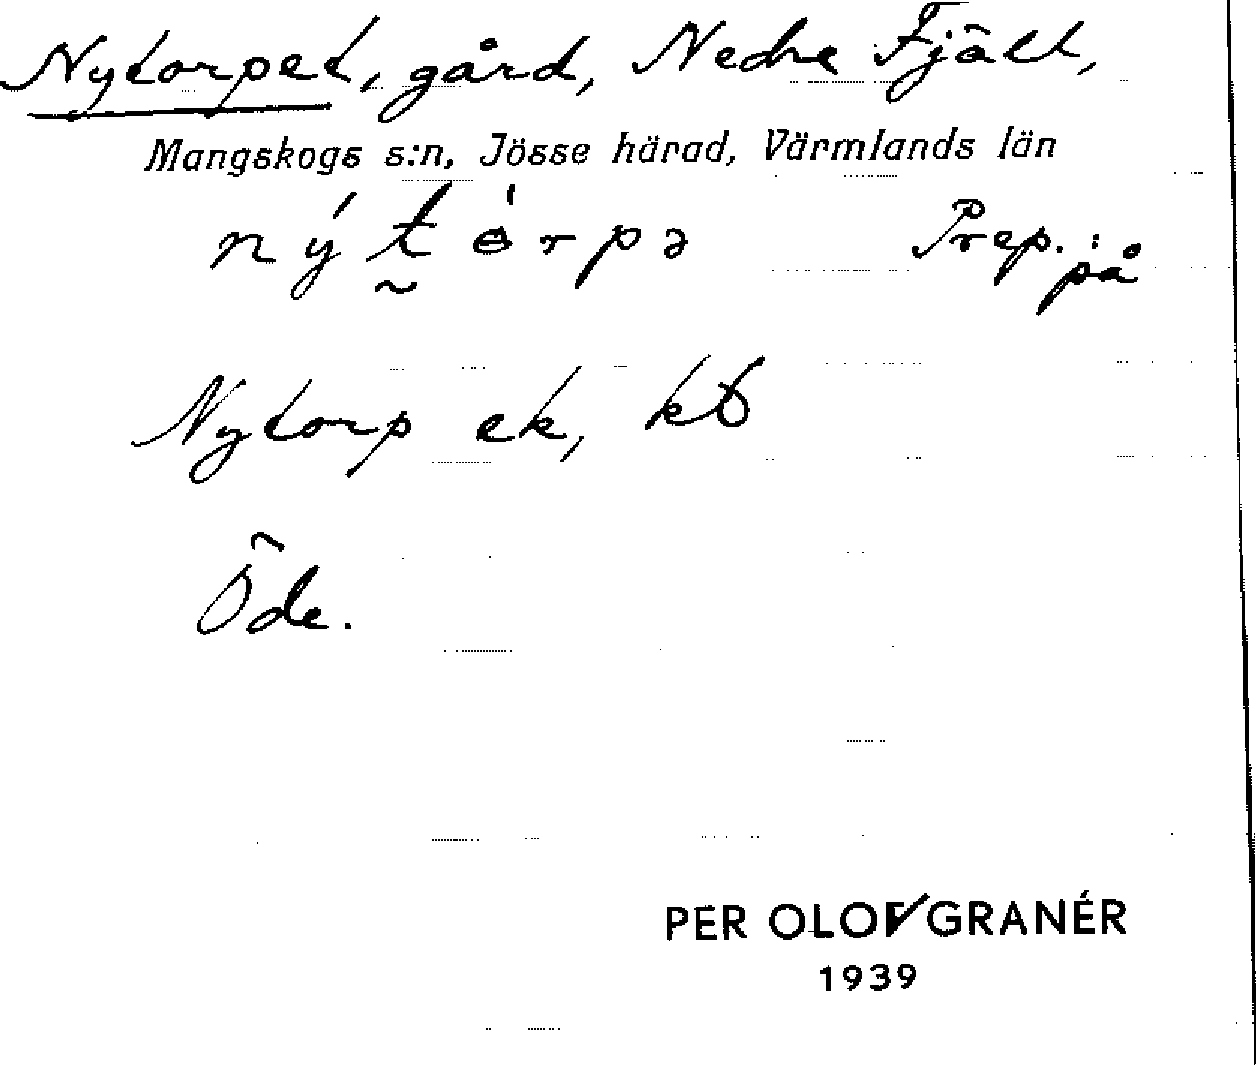 Nytorpet, gård, Nedre Fjäll,
Mangskogs s:n, Jösse härad, Värmlands län
nýt̰órpə Prep.: på
Nytorp ek, kb
Öde.
PER OLOV GRANÉR
1939